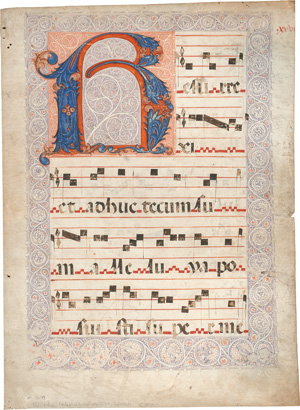 R esu rre
xi
et adhuc tecum su
m alle lu ya po
sui sti su pe r me